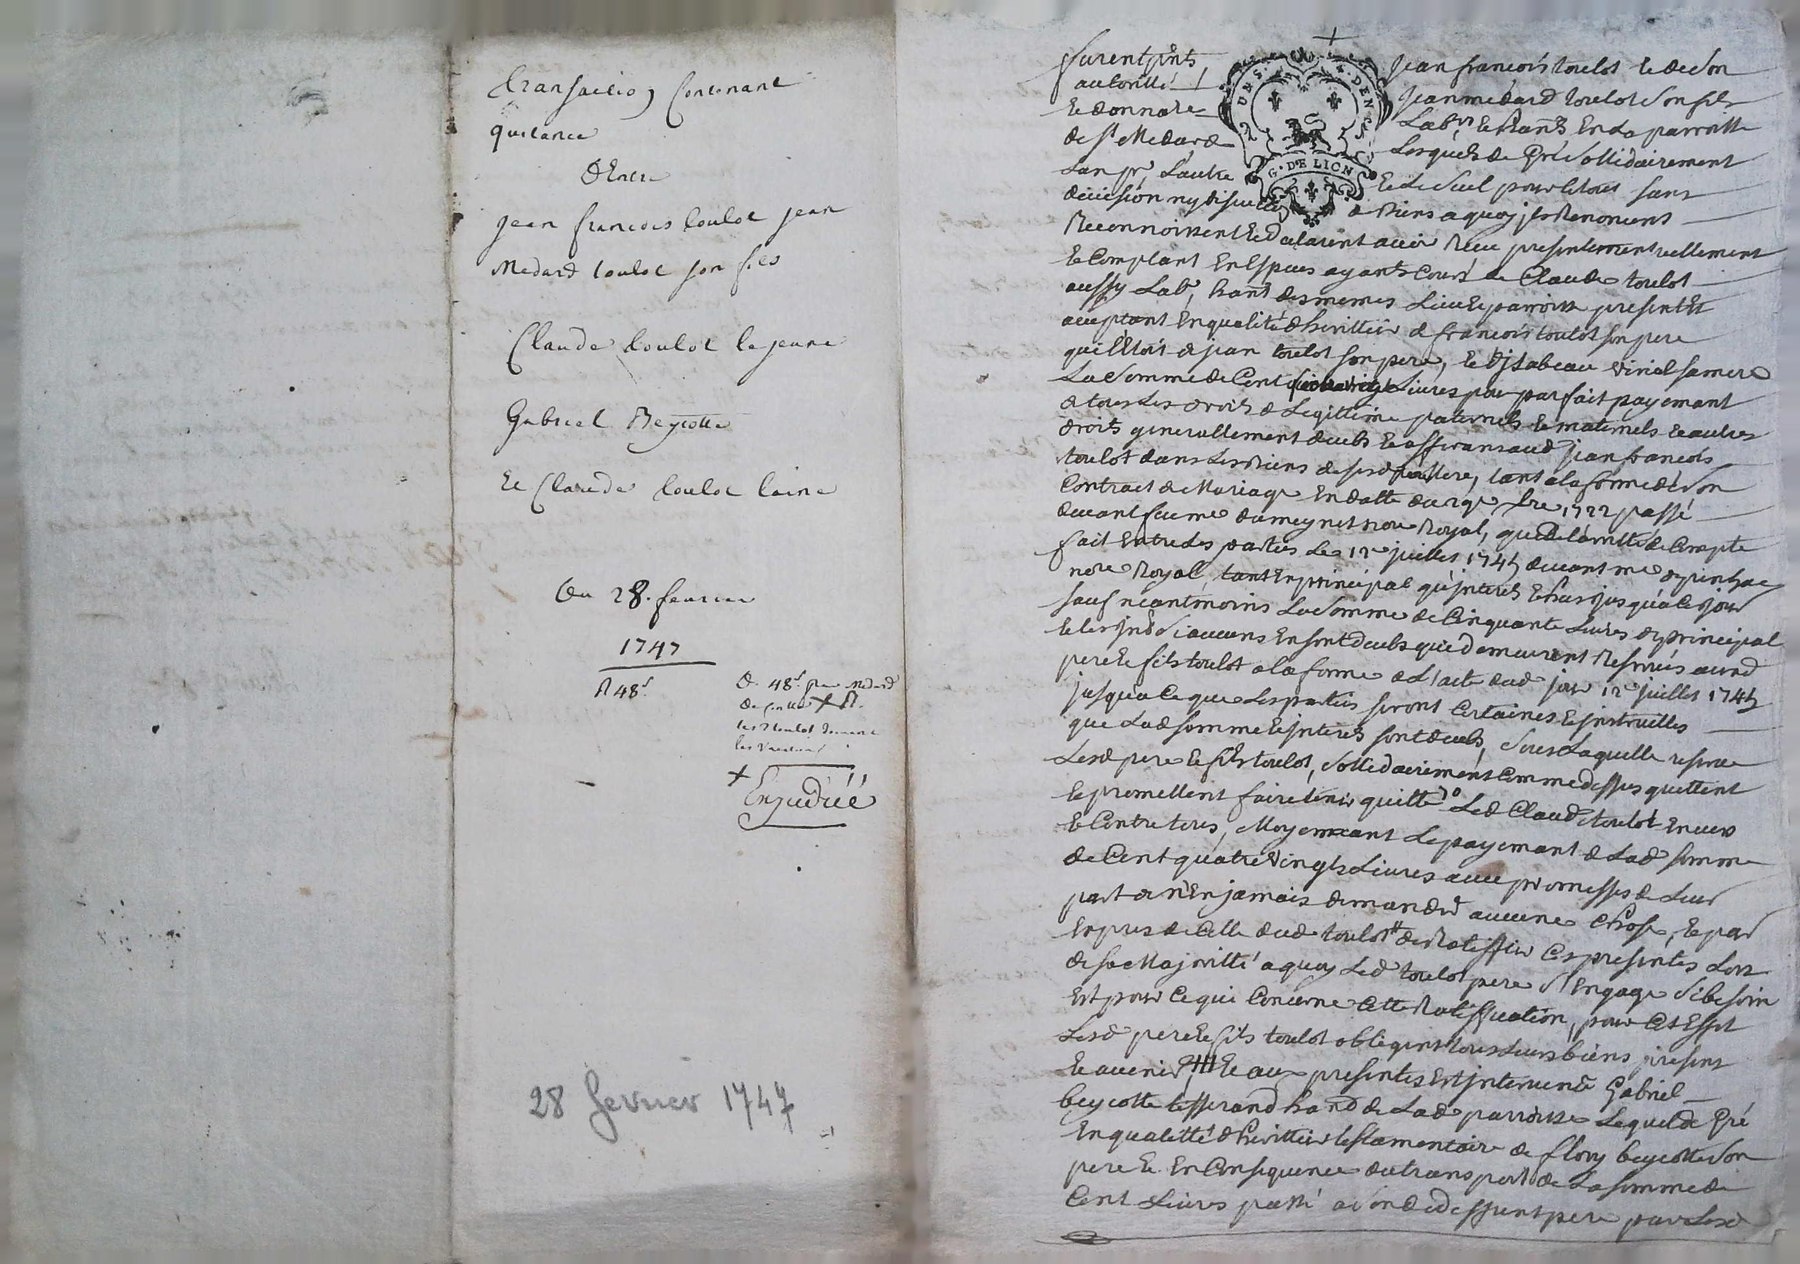 transaction Contenant
quitance
D'Entre
Jean francois toulot jean
Medard toulot son fils
Claude toulot le jeune
Gabriel Beycotte
Et Claude toulot laine
Du 28. fevrier
1747
R 48s
De 48s
Enjudiéé
28 fevrier 1747
GENS . DE LION
furent pnts Jean francois toulot Et de son
autoritté Jean medard toulot son fils
de St Medard Lesquels de Gré sollidairement
Lun pr Lautre Et Le seul pour le tout sans
division ny discution de Biens a quoy ils Renoncent
Reconnoissent Et declarent avoir Receu presentement reellement
Et Comptant En Especes ayants Cours de Claude toulot
aussy Labr hant des memes Lieu Et parroisse present Et
acceptant En qualité d'herittier de francois toulot son pere
qui L'etoit de jean toulot son pere, Et d'jsabeau vinel sa mere
La somme de Cent quatrevingt Livres pour parfait payemant
de tous Les droits de Legittime paternels Et maternels Et autres
droits generallement deubs Et afferans aud jean francois
toulot dans Les Biens de sesd pere Et mere, tant a la forme de son
Contract de Mariage En datte du 1722 passé
devant feu me dumeynet nore Royal, que de l'arretté de Compte
fait Entre Les parties Le 12e juillet 1745 devant me
nore Royal, tant En principal qu'jnterets Et frais jusqu'a Ce jour
sauf neantmoins La somme de Cinquante Livres de principal
Et les jnts si aucuns En sont deubs qui demeurent Reservés ausd
pere Et fils toulot a la forme de L'acte dud jour 12e juillet 1745
jusqu'a Ce que Les parties seront Certaines Et jnstruittes
que Lad somme Et jnterets sont deubs, sous Laquelle reserve
Lesd pere Et fils toulot, sollidairement Comme dessus quittent
Et promettent faire tenir quitte Led Claude toulot Envers
Et Contre tous, Moyennant Le payemant de Lad somme
de Cent quatre vingts Livres avec promesses de Leur
part de n'En jamais demander aucune Chose, Et par
Expres de Celle dud toulot de Ratiffier Ces presentes Lors
de sa Majoritté a quoy Led toulot pere s'Engage si besoin
Est pour Ce qui Concerne Cette Ratiffication, pour Cet Effet
Lesd pere Et fils toulot obligent tous Leurs biens present
Et avenir, Et aux presentes Est jntervenu Gabriel
beycotte tisserand hand de Lad parroisse Lequel de Gré
En qualitté d'herittier testamentaire de flory beycotte son
pere Et En Consequence du transport de La somme de
Cent Livres passé a sond deffunt pere par Lesd